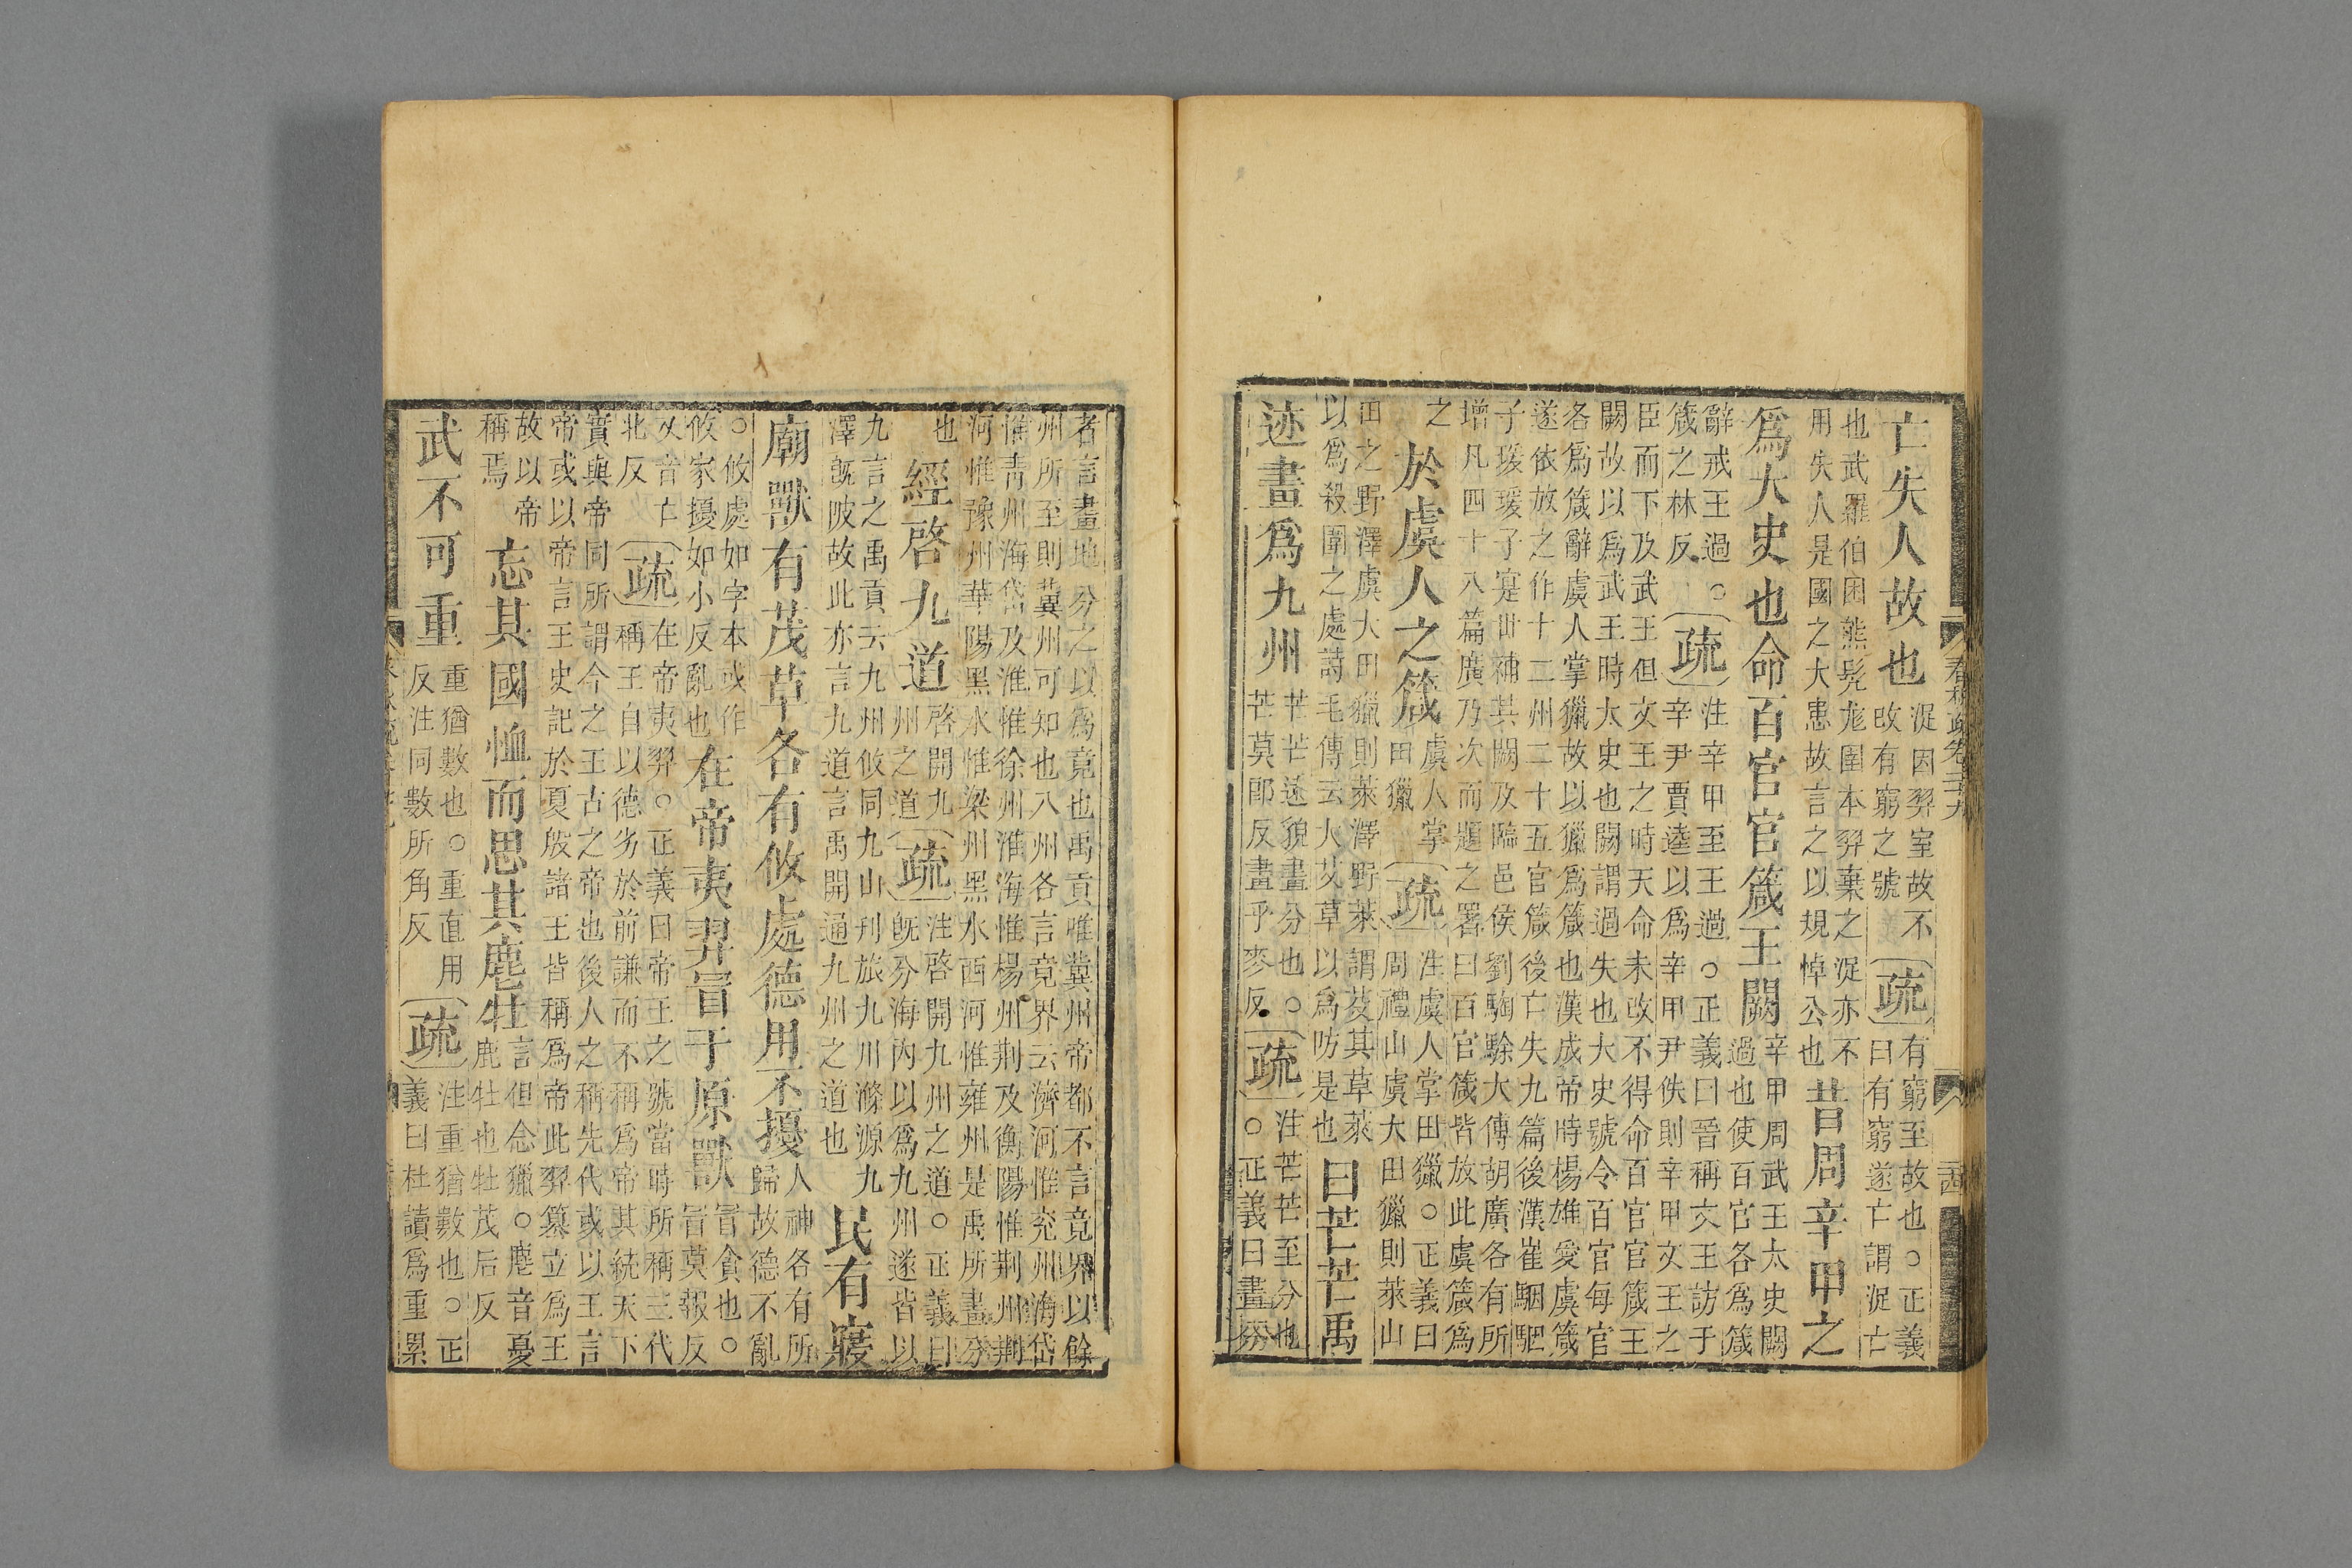 亡失人故也浞因羿室故不改有窮之號疏有窮至故也○正義曰有窮遂亡謂浞亡
也武羅伯困熊髡尨圉本羿棄之浞亦不用失人是國之大患故言之以規悼公也昔周辛甲之
爲大史也命百官官箴王闕辛甲周武王太史闕過也使百官各爲箴
辭戒王過○箴之林反疏注辛甲至王過○正義曰晉稱文王訪于辛尹賈逵以爲辛甲尹佚則辛甲文王之
臣而下及武王但文王之時天命未改不得命百官官箴王闕故以爲武王時太史也闕謂過失也大史號令百官每官
各爲箴辭虞人掌獵故以獵爲箴也漢成帝時楊雄愛虞箴遂依放之作十二州二十五官箴後亡失九篇後漢崔駰駰
子瑗瑗子寔世補其闕及臨邑侯劉騊駼大傅胡廣各有所增凡四十八篇廣乃次而題之署曰百官箴皆放此虞箴爲
之於虞人之箴虞人掌田獵疏注虞人掌田獵○正義曰周禮山虞大田獵則萊山
田之野澤虞大田獵則萊澤野萊謂芟其草萊以爲殺圍之處詩毛傳云大艾草以爲防是也曰芒芒禹
迹畫爲九州芒芒遠貌畫分也○芒莫郎反畫乎麥反疏注芒芒至分也○正義曰畫分
者言畫地分之以爲竟也禹貢唯冀州帝都不言竟界以餘州所至則冀州可知也八州各言竟界云濟河惟兗州海岱
惟青州海岱及淮惟徐州淮海惟楊州荆及衡陽惟荆州荆河惟豫州華陽黑水惟梁州黑水西河惟雍州是禹所畫分
也經啓九道啓開九州之道疏注啓開九州之道○正義曰旣分海內以爲九州遂皆以
九言之禹貢云九州攸同九山刋旅九川滌源九澤旣陂故此亦言九道言禹開通九州之道也民有寢
廟獸有茂草各有攸處德用不擾人神各有所歸故德不亂
○攸處如字本或作攸家擾如小反亂也在帝夷羿冒于原獸冒貪也○冒莫報反
又音亡北反疏在帝夷羿○正義曰帝王之號當時所稱三代稱王自以德劣於前謙而不稱爲帝其統天下
實與帝同所謂今之王古之帝也後人之稱先代或以王言帝或以帝言王史記於夏殷諸王皆稱爲帝此羿簒立爲王
故以帝稱焉忘其國恤而思其麀牡言但念獵○麀音憂鹿牡也牡茂后反
武不可重重猶數也○重直用反注同數所角反疏注重猶數也○正義曰杜讀爲重累